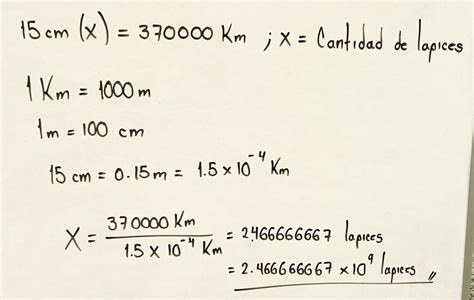 15 cm (x) = 370000 Km ; x = Cantidad de lapices
1 Km = 1000 m
1 m = 100 cm
15 cm = 0.15 m = 1.5 x 10⁻⁴ Km
X = 370000 Km / 1.5 x 10⁻⁴ Km = 2466666667 lapices
= 2.466666667 x 10⁹ lapices //